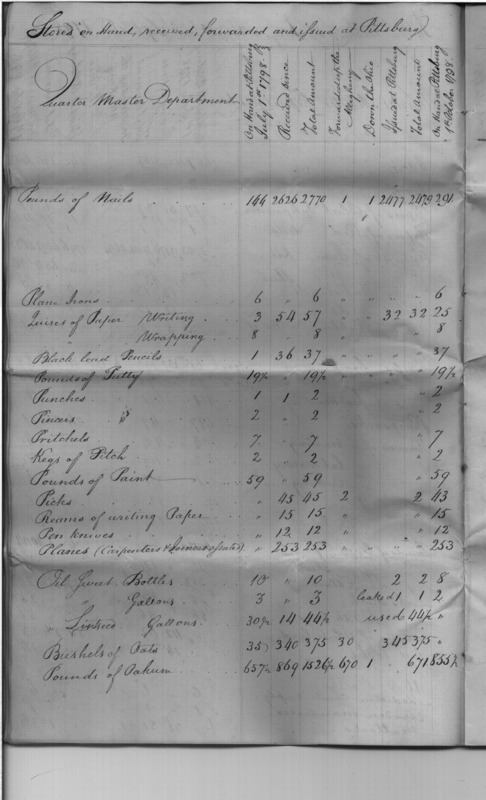 Stores on Hand, received, forwarded and issued at Pittsburg
Quarter Master Department
On Hand at Pittsburg July 1st 1798
Received since
Total Amount
Forwarded up the Alleghany
Down the Ohio
Issued at Pittsburg
Total Amount
On Hand at Pittsburg 1st October 1798
Pounds of Nails 144 2626 2770 1 1 2477 2479 291
Plane Irons 6 " 6 " " " " 6
Quires of Paper Writing 3 54 57 " " 32 32 25
" Wrapping 8 " 8 " " " " 8
Black lead Pencils 1 36 37 " " " " 37
Pounds of Putty 19½ " 19½ " " " " 19½
Punches 1 1 2 " 2
Pincers 2 " 2 " 2
Pritchels 7 " 7 " 7
Kegs of Pitch 2 " 2 " 2
Pounds of Paint 59 " 59 " 59
Picks " 45 45 2 2 43
Reams of writing Paper " 15 15 " " 15
Pen knives " 12 12 " " 12
Planes (Carpenters & " 253 253 " " " 253
Oil Sweet Bottles 10 " 10 2 2 8
" Gallons 3 " 3 leaked 1 1 2
" Linseed Gallons 30½ 14 44½ used 44½ "
Bushels of Oats 35 340 375 30 345 375 "
Pounds of Oakum 657½ 869 1526½ 670 1 671 855½